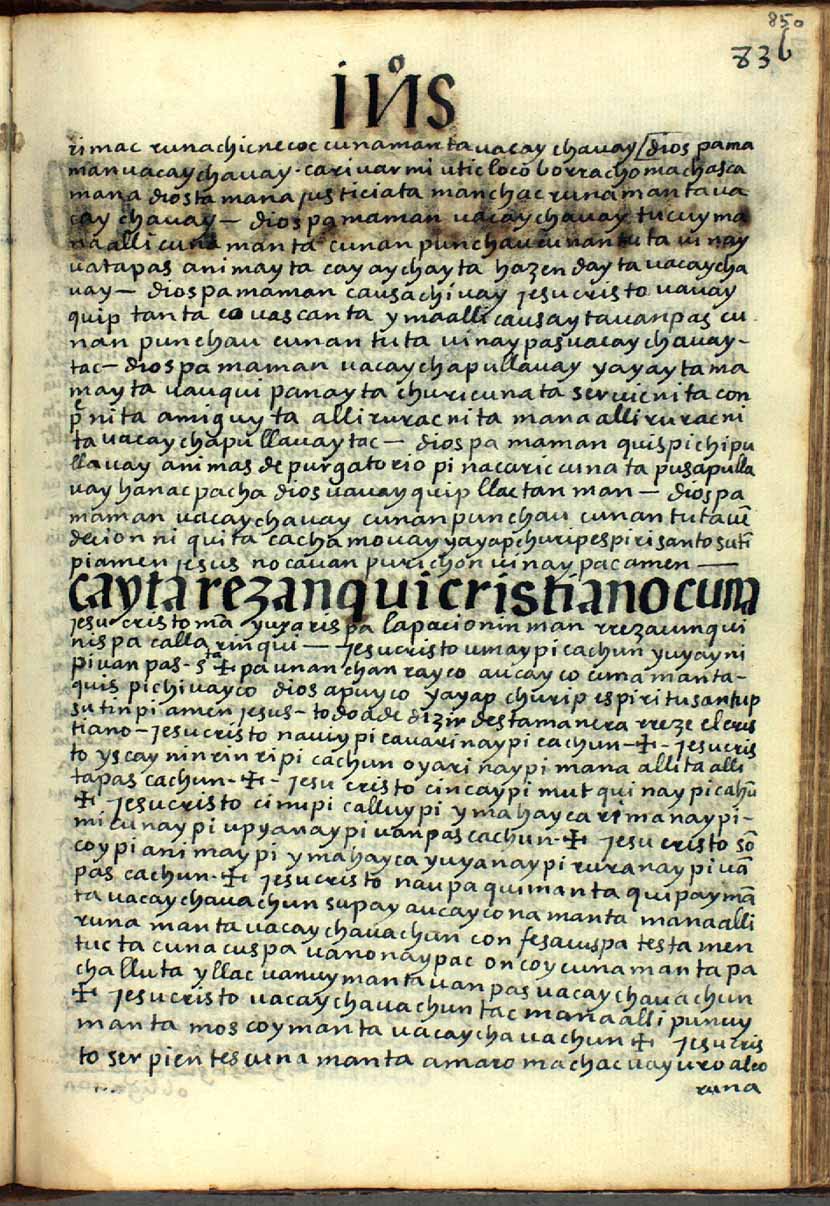 850
836
iñs
rimac runa chicnecoc cunamanta uacay chauay [dios pa ma
man uacay chauay. cari uarmi utic loco borracho machasca
mana diosta mana justiciata manchac runamanta ua
cay chauay — dios pa maman uacay chauay tucuy ma
na alli cuna manta cunan punchau cunan tuta uinay
uatapas animayta cayaychayta hazendayta uacaycha
uay — dios pa maman causachiuay jesucristo uauay
quip tanta couascanta yma alli causaytauanpas cu
nan punchau cunan tuta uinaypas uacaychauay-
tac — dios pa maman uacaychapullauay yayayta ma
mayta uauqui panayta churi cunata seruicnita con
pe nita amiguyta alli ruracnita mana alli ruracni
ta uacaychapullauaytac — dios pa maman quispichipu
llauay animas de purgatorio pinacariccunata pusapulla
uay hanacpacha dios uauayquip llactanman — dios pa
maman uacaychauay cunan punchau cunan tuta uē
decion ni quita cachamouay yayap churip espiri santo sutī
pi amen jesus nocauan purichon uinaypac amen —
cayta rezanqui cristianocuna
jesucristo mā yuyarispa lapacioninman rrezaunqui
nispa callarinqui — jesucristo umaypi cachun yuyayni
piuanpas - sta ✠ pa unanchanrayco aucayco cunamanta-
quispichiuayco dios apuyco yayap churip espiritu santup
sutinpi amen jesus - todo a de dizir desta manera rreze el cris
tiano - jesucristo nauiypi cauarinaypi cachun - ✠ - jesucris
to yscaynin rinripi cachun oyarinaypi mana allita alli
tapas cachun - ✠ - jesucristo cincaypi mutquinaypi cachū
✠ jesucristo cimipi calluypi yma hayca rimanaypi -
micunaypi upyanaypi uanpas cachun - ✠ jesucristo sō
coypi animaypi yma hayca yuyanaypi ruranaypi uā
pas cachun - ✠ jesucristo naupaquimanta quipaymā
ta uacaychauachun supay aucayconamanta mana alli
runamanta uacaychauachun confesacuspa testamen
tuc ta cunacuspa uanonaypac oncoycunamanta pa
challuta yllac uanuymanta uanpas uacaychauachun
✠ jesucristo uacaychauachuntac mana alli punuy
manta moscoymanta uacaychauachun ✠ jesucris
to serpientescunamanta amaro machacuay uro alco
runa